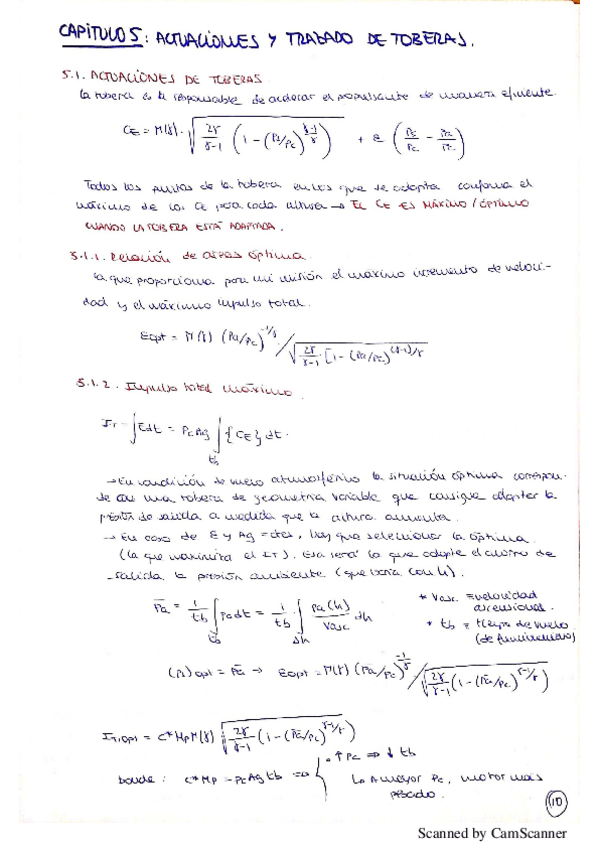 CAPÍTULO 5: ACTUACIONES Y TRAZADO DE TOBERAS.
5.1. ACTUACIONES DE TOBERAS
La tobera es la responsable de acelerar el propulsante de manera eficiente.
CE = Γ(γ) · √(2γ/(γ-1) (1-(Ps/Pc)^((γ-1)/γ))) + ε (Ps/Pc - Pa/Pc)
Todos los puntos de la tobera en los que se adapta conforma el
máximo de los CE para cada altura → EL CE ES MÁXIMO / ÓPTIMO
CUANDO LA TOBERA ESTÁ ADAPTADA.
5.1.1. Relación de áreas óptima
La que proporciona para mi misión el máximo incremento de veloci-
dad y el máximo impulso total.
Eopt = Γ(γ) (Pa/Pc)^(-1/γ) / √(2γ/(γ-1) · [1-(Pa/Pc)^((γ-1)/γ)])
5.1.2. Impulso total máximo
IT = ∫Edt = PcAg ∫tb {CE} dt.
→ En condición de vuelo atmosférico la situación óptima correspon-
de con una tobera de geometría variable que consigue adaptar la
presión de salida a medida que la altura aumenta.
→ En caso de ε y Ag = ctes, hay que seleccionar la óptima
(la que maximiza el IT). Esa será la que adapte el chorro de
salida a la presión ambiente (que varía con h).
P̄a = 1/tb ∫tb Pa dt = 1/tb ∫Δh Pa(h)/Vasc dh
* Vasc = velocidad
ascensional.
* tb = tiempo de vuelo
(de funcionamiento)
(Ps)opt = P̄a → Eopt = Γ(γ) (P̄a/Pc)^(-1/γ) / √(2γ/(γ-1) (1-(P̄a/Pc)^((γ-1)/γ)))
IT,opt = C* Mp Γ(γ) √(2γ/(γ-1) (1-(P̄a/Pc)^((γ-1)/γ)))
Donde: C* Mp = Pc Ag tb ⇒ { ↑ Pc ⇒ ↓ tb
↳ A mayor Pc, motor más
pesado.
10
Scanned by CamScanner